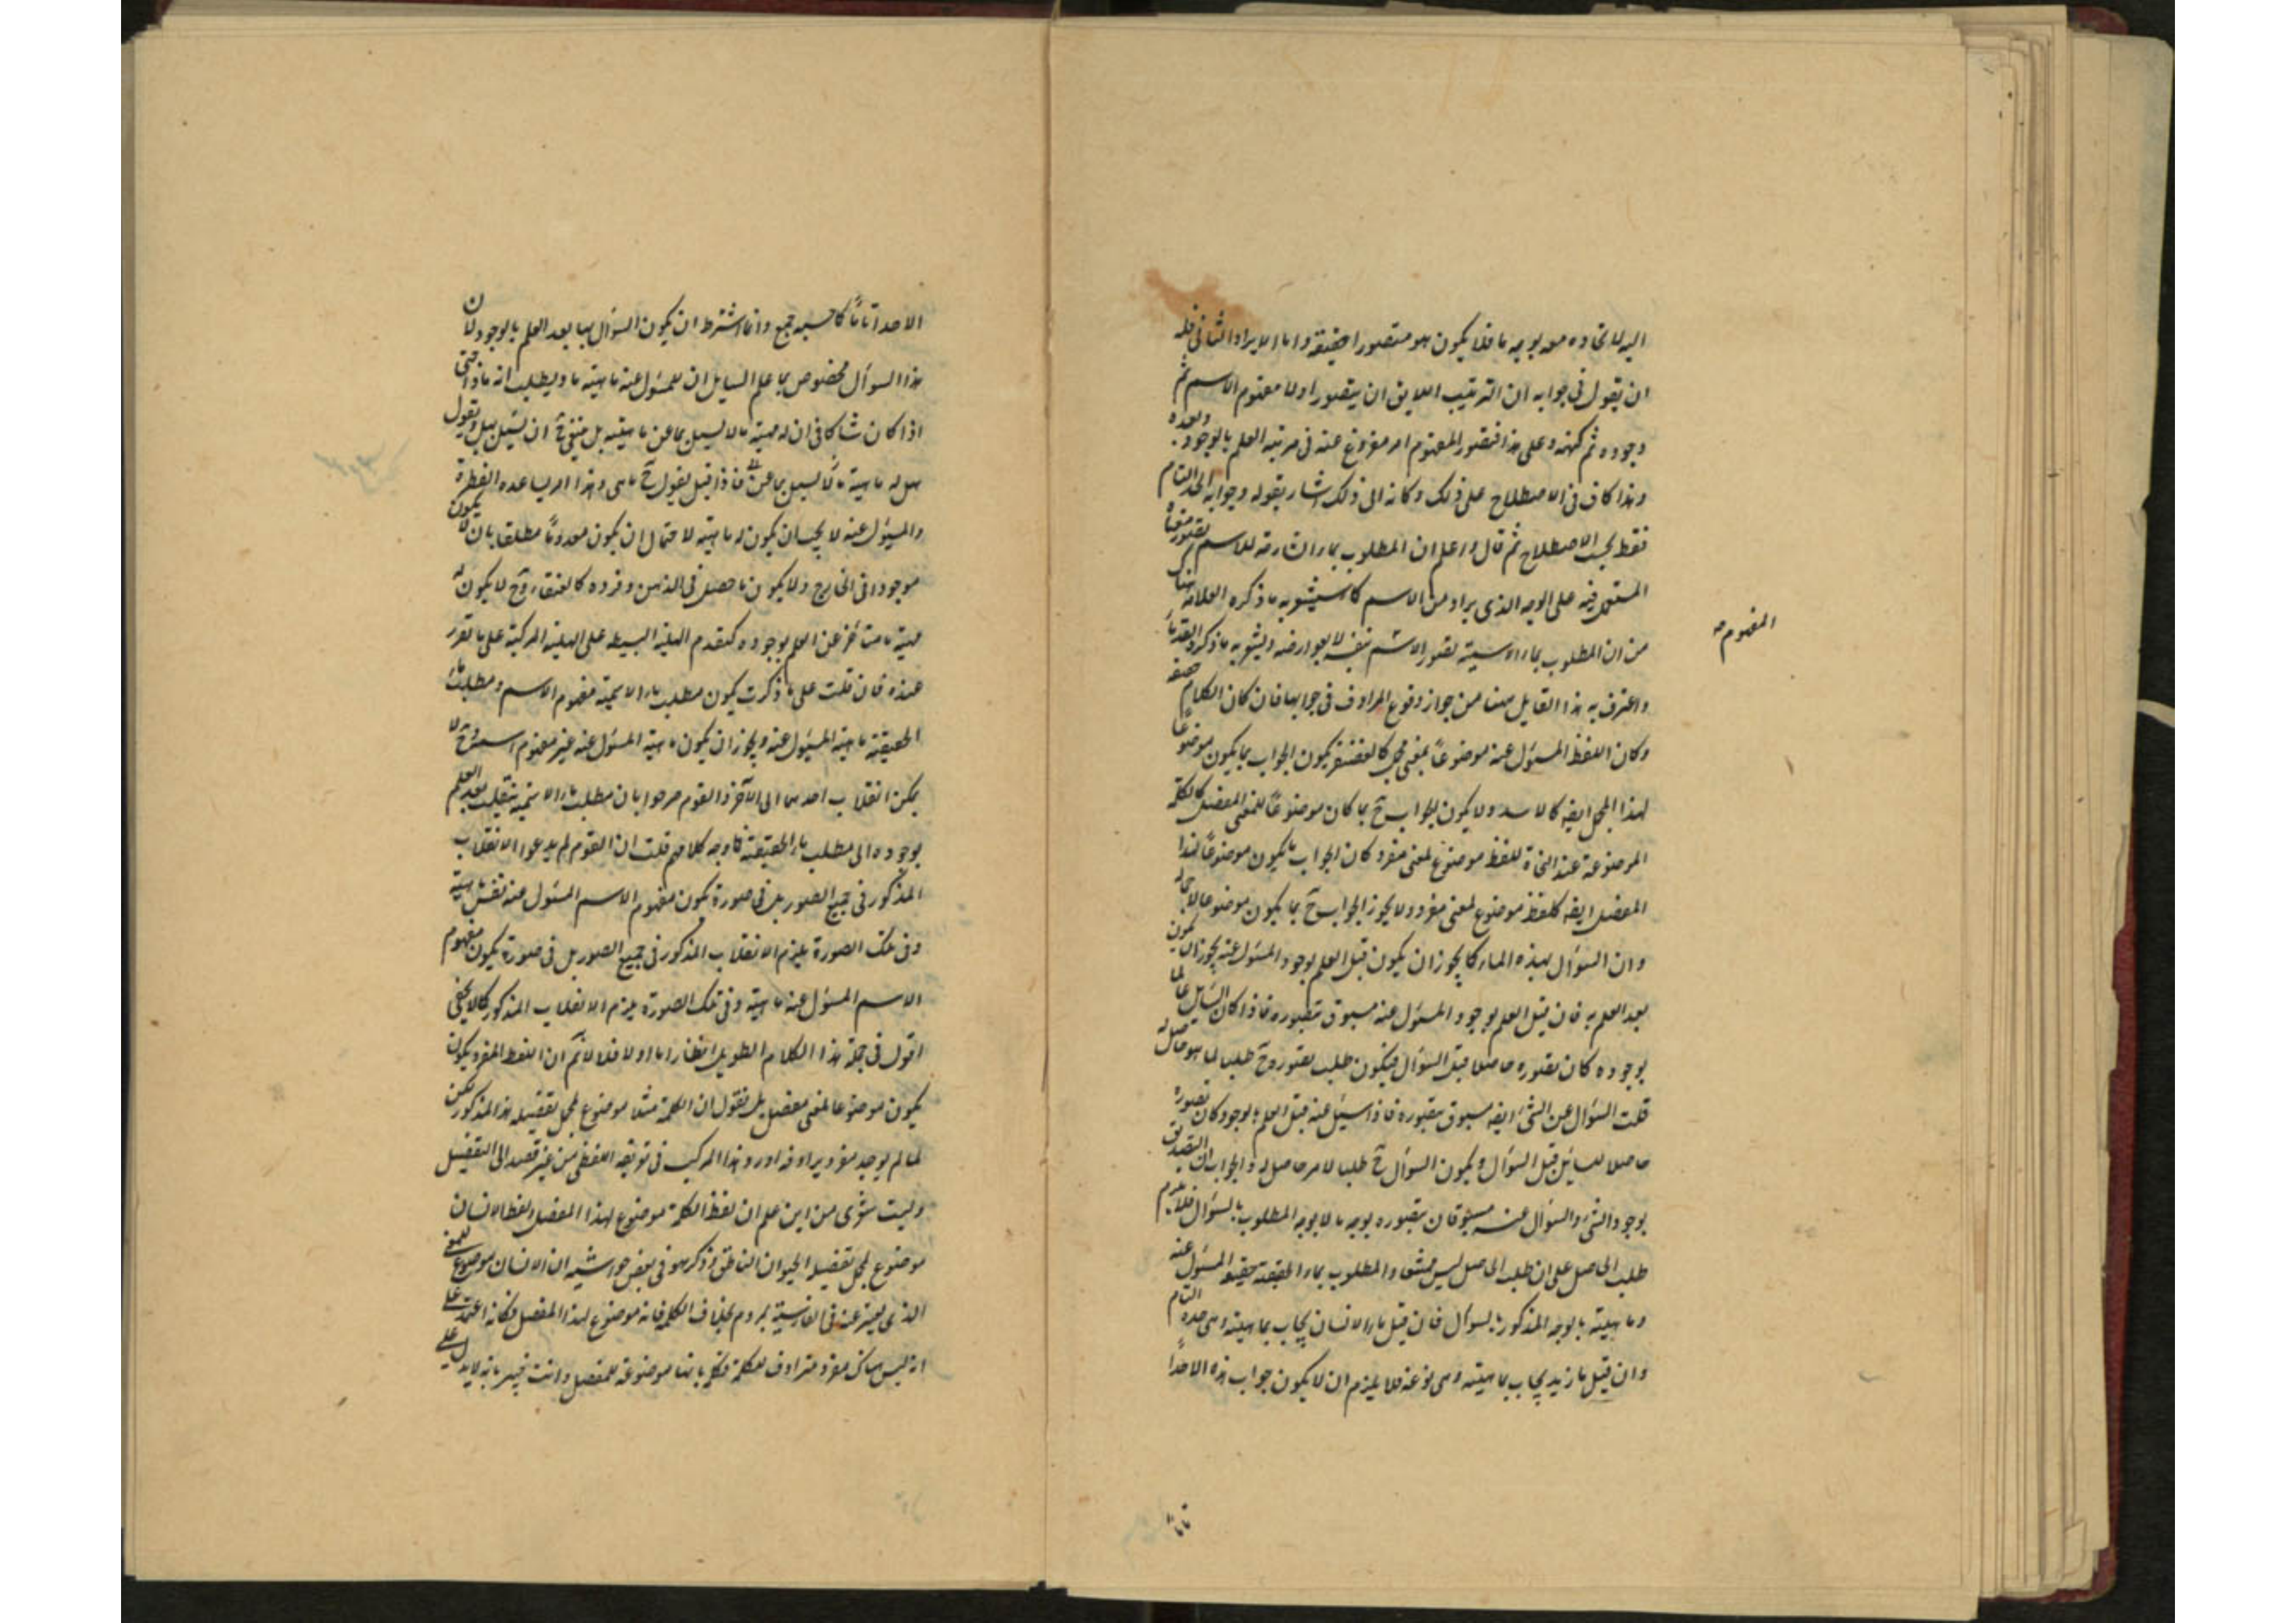 اليه لاتحاده معه بوجه ما فلا يكون هو متصورا حقيقة واما الايراد الثاني فله
ان يقول في جوابه ان الترتيب اللايق ان يتصور اولا مفهوم الاسم ثم
وجوده ثم كنهه وعلى هذا فتصور المفهوم امر مفروغ عنه في مرتبة العلم بالوجود وبعده
وهذا كاف في الاصطلاح على ذلك وكانه الى ذلك اشار بقوله وجوابه الحد التام
فقط بحسب الاصطلاح ثم قال واعلم ان المطلوب بما الشارحة للاسم تصور معناه
المستعمل فيه على الوجه الذي يراد من الاسم كما سيشعر به ما ذكره العلامة هناك
من ان المطلوب بما الاسمية تصور الاسم بنفسه لا بعوارضه ويشعر به ما ذكره القدماء
واعترف به هذا القايل ههنا من جواز وقوع المرادف في جوابها فان كان الكلام
وكان اللفظ المسئول عنه موضوعا لمعنى مجمل كالغضنفر يكون الجواب بما يكون موضوعا
لهذا المجمل ايضا كالاسد ولا يكون الجواب ح بما كان موضوعا للمعنى المفصل كالكلمة
الموضوعة عند النحاة للفظ موضوع لمعنى مفرد كان الجواب بما يكون موضوعا لهذا
المفصل ايضا كلفظ موضوع لمعنى مفرد ولا يجوز الجواب ح بما يكون موضوعا لاجماله
وان السؤال بهذه الما كما يجوز ان يكون قبل العلم بوجود المسئول عنه يجوز ان يكون
بعد العلم به فان قيل العلم بوجود المسئول عنه مسبوق بتصوره فاذا كان السايل عالما
بوجوده كان تصوره حاصلا قبل السؤال فيكون طلب تصوره ح طلبا لما هو حاصل له
قلت السؤال عن الشئ ايضا مسبوق بتصوره فاذا سئل عنه قبل العلم بالوجود كان تصوره
حاصلا للسائل قبل السؤال ويكون السؤال ح طلبا لامر حاصل له والجواب ان التصديق
بوجود الشئ والسؤال عنه مسبوقان بتصوره بوجه ما لا بوجه المطلوب بالسؤال فلا يلزم
طلب الحاصل على ان طلب الحاصل ليس والمطلوب بما الحقيقة حقيقة المسئول عنه
وماهيته بالوجه المذكور بالسؤال فان قيل ما الانسان يجاب بماهيته وهي حده التام
وان قيل ما زيد يجاب بماهيته وهي نوعه فلا يلزم ان لا يكون جواب هذه الا حدا
المفهوم صه
تاما
الا حدا تاما كما حسبه جمع وانما اشترط ان يكون السؤال بها بعد العلم بالوجود لان
هذا السؤال مخصوص بما علم السايل ان للمسئول عنه ماهية ما ويطلب انه ماذا حتى
اذا كان شاكا في ان له مهية ما لا يسئل بما عن ماهيته بل ينبغي ح ان يسئل بهل ويقول
هل له ماهية ما لا يسئل بما عن فاذا قيل يقول ح ما هي وهذا امر يساعده الفطرة
والمسئول عنه لا يجب ان يكون له ماهية لاحتمال ان يكون معدوما مطلقا بان لا يكون
موجودا في الخارج ولا يكون ما حصل في الذهن وفرده كالعنقاء وح لا يكون له
مهية ما متاخر عن العلم بوجوده كتقدم الهلية البسيطة على الهلية المركبة على ما تقرر
عنده فان قلت على ما ذكرت يكون مطلب ما الاسمية مفهوم الاسم ومطلب ما
الحقيقة ماهية المسئول عنه ويجوز ان يكون ماهية المسئول عنه غير مفهوم اسمه وح لا
يمكن انقلاب احدهما الى الآخر والقوم صرحوا بان مطلب ما الاسمية ينقلب بعد العلم
بوجوده الى مطلب ما الحقيقة فما وجه كلامهم قلت ان القوم لم يدعوا الانقلاب
المذكور في جميع الصور بل في صورة يكون مفهوم الاسم المسئول عنه نفس ماهيته
وفي تلك الصورة يلزم الانقلاب المذكور في جميع الصور بل في صورة يكون مفهوم
الاسم المسئول عنه ماهيته وفي تلك الصورة يلزم الانقلاب المذكور كما لا يخفى
اقول في جملة هذا الكلام الطويل انظار اما اولا فلا نسلم ان اللفظ المفرد يكون
يكون موضوعا لمعنى مفصل بل نقول ان الكلمة مثلا موضوع لمجمل تفصيله هذا المذكور لكن
لما لم يوجد مفرد يرادفه اورد هذا المركب في تعريفه اللفظي من غير قصد الى التفصيل
وليت شعرى من اين علم ان لفظ الكلمة موضوع لهذا المفصل ولفظ الانسان
موضوع لمجمل تفصيله الحيوان الناطق وذكر هو في بعض حواشيه ان الانسان موضوع للمعنى
الذي يعبر عنه في الفارسية بمردم بخلاف الكلمة فانه موضوع لهذا المفصل وكانه اعتمد على
انه ليس هناك مفرد مترادف للكلمة فحكم بانها موضوعة للمفصل وانت خبير بانه لا يدل على